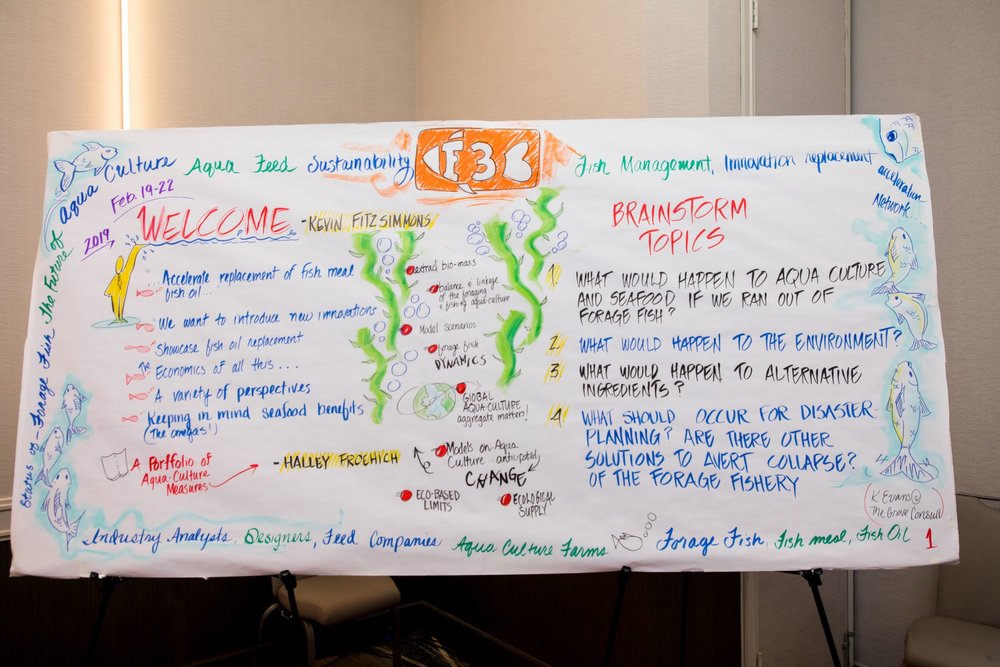 Status of - Forage Fish The Future of Aqua Culture
Aqua Feed
Sustainability
F3
Fish Management, Innovation replacement
acceleration
Network
Feb. 19-22
2019
WELCOME
- KEVIN FITZSIMMONS
Accelerate replacement of fish meal
fish oil....
We want to introduce new innovations
Showcase fish oil replacement
The Economics of all this....
A variety of perspectives
Keeping in mind seafood benefits
(The omegas!)
A Portfolio of
Aqua-Culture
Measures
- HALLEY FROEHICH
extract bio-mass
balance & linkage
of the foraging
& fishing aqua-culture
Model scenarios
forage fish
DYNAMICS
GLOBAL
AQUA-CULTURE
aggregate matters!
Models on Aqua
Culture - anticipated
CHANGE
ECO-BASED
LIMITS
ECOLOGICAL
SUPPLY
BRAINSTORM
TOPICS
1 WHAT WOULD HAPPEN TO AQUA CULTURE
AND SEAFOOD IF WE RAN OUT OF
FORAGE FISH?
2 WHAT WOULD HAPPEN TO THE ENVIRONMENT?
3 WHAT WOULD HAPPEN TO ALTERNATIVE
INGREDIENTS?
4 WHAT SHOULD OCCUR FOR DISASTER-
PLANNING? ARE THERE OTHER
SOLUTIONS TO AVERT COLLAPSE?
OF THE FORAGE FISHERY
K Evans @
The Grove Consult
Industry Analysts, Designers, Feed Companies
Aqua Culture Farms
Forage Fish, Fish meal, Fish Oil
1